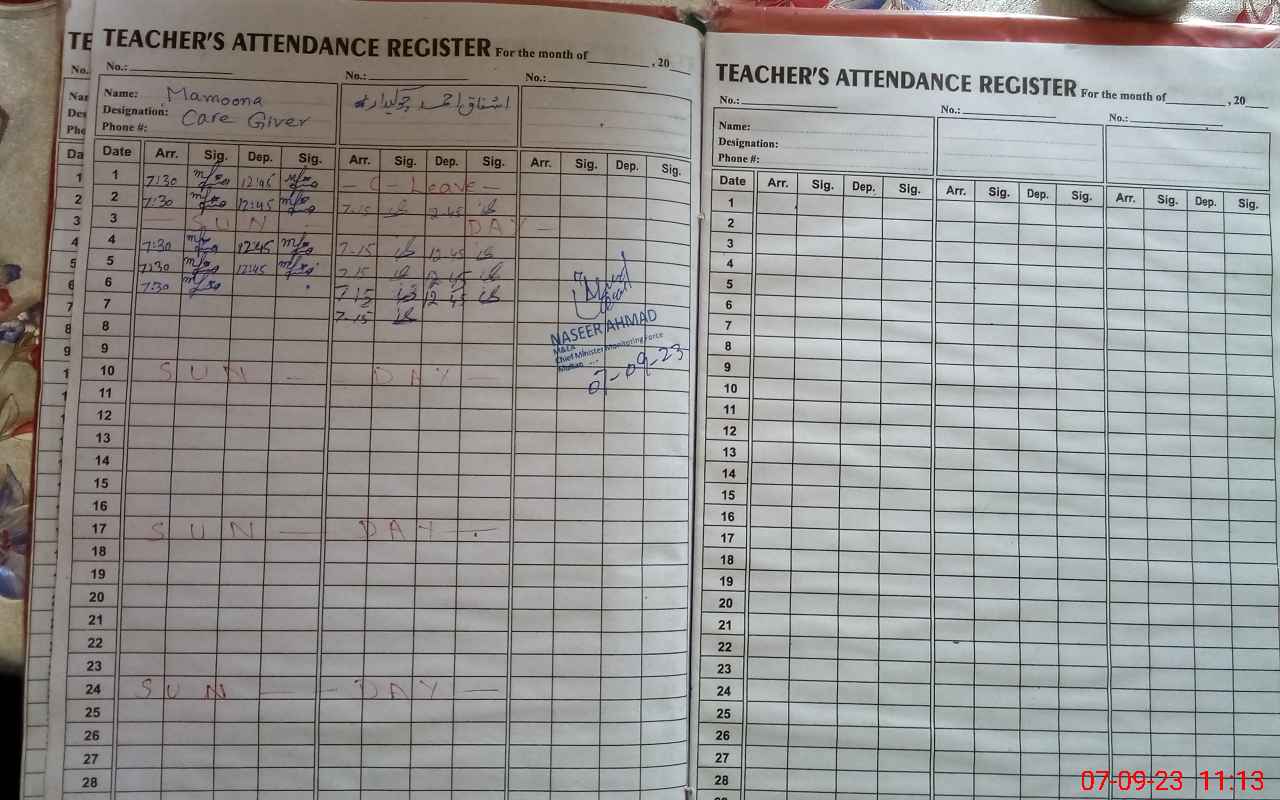 TE
No.
Nar
Des
Pho
Da
1
2
3
4
5
6
7
8
9
TEACHER'S ATTENDANCE REGISTER For the month of________, 20__
No.: No.: No.:
Name: Mamoona اشفاق احمد چوکیدار
Designation: Care Giver
Phone #:
Date Arr. Sig. Dep. Sig. Arr. Sig. Dep. Sig. Arr. Sig. Dep. Sig.
1 7:30 12:45 - C - Leave -
2 7:30 12:45 7-15 12-45
3 - SUN - DAY -
4 7:30 12:45 7-15 12 45
5 7:30 12:45 7-15 12 45
6 7:30 7-15 12 45
7 7-15
8
9
10 SUN - DAY -
11
12
13
14
15
16
17 SUN - DAY -
18
19
20
21
22
23
24 SUN - - DAY -
25
26
27
28
NASEER AHMAD
M&EA
Chief Minister Monitoring Force
Multan
07-09-23
TEACHER'S ATTENDANCE REGISTER For the month of________, 20__
No.: No.: No.:
Name:
Designation:
Phone #:
Date Arr. Sig. Dep. Sig. Arr. Sig. Dep. Sig. Arr. Sig. Dep. Sig.
1
2
3
4
5
6
7
8
9
10
11
12
13
14
15
16
17
18
19
20
21
22
23
24
25
26
27
28
07-09-23 11:13